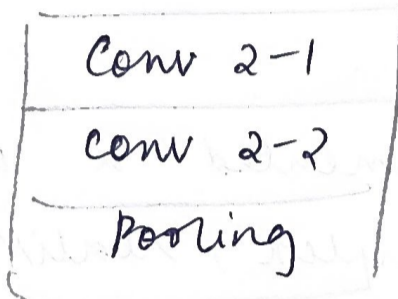 Conv 2-1
Conv 2-2
Pooling